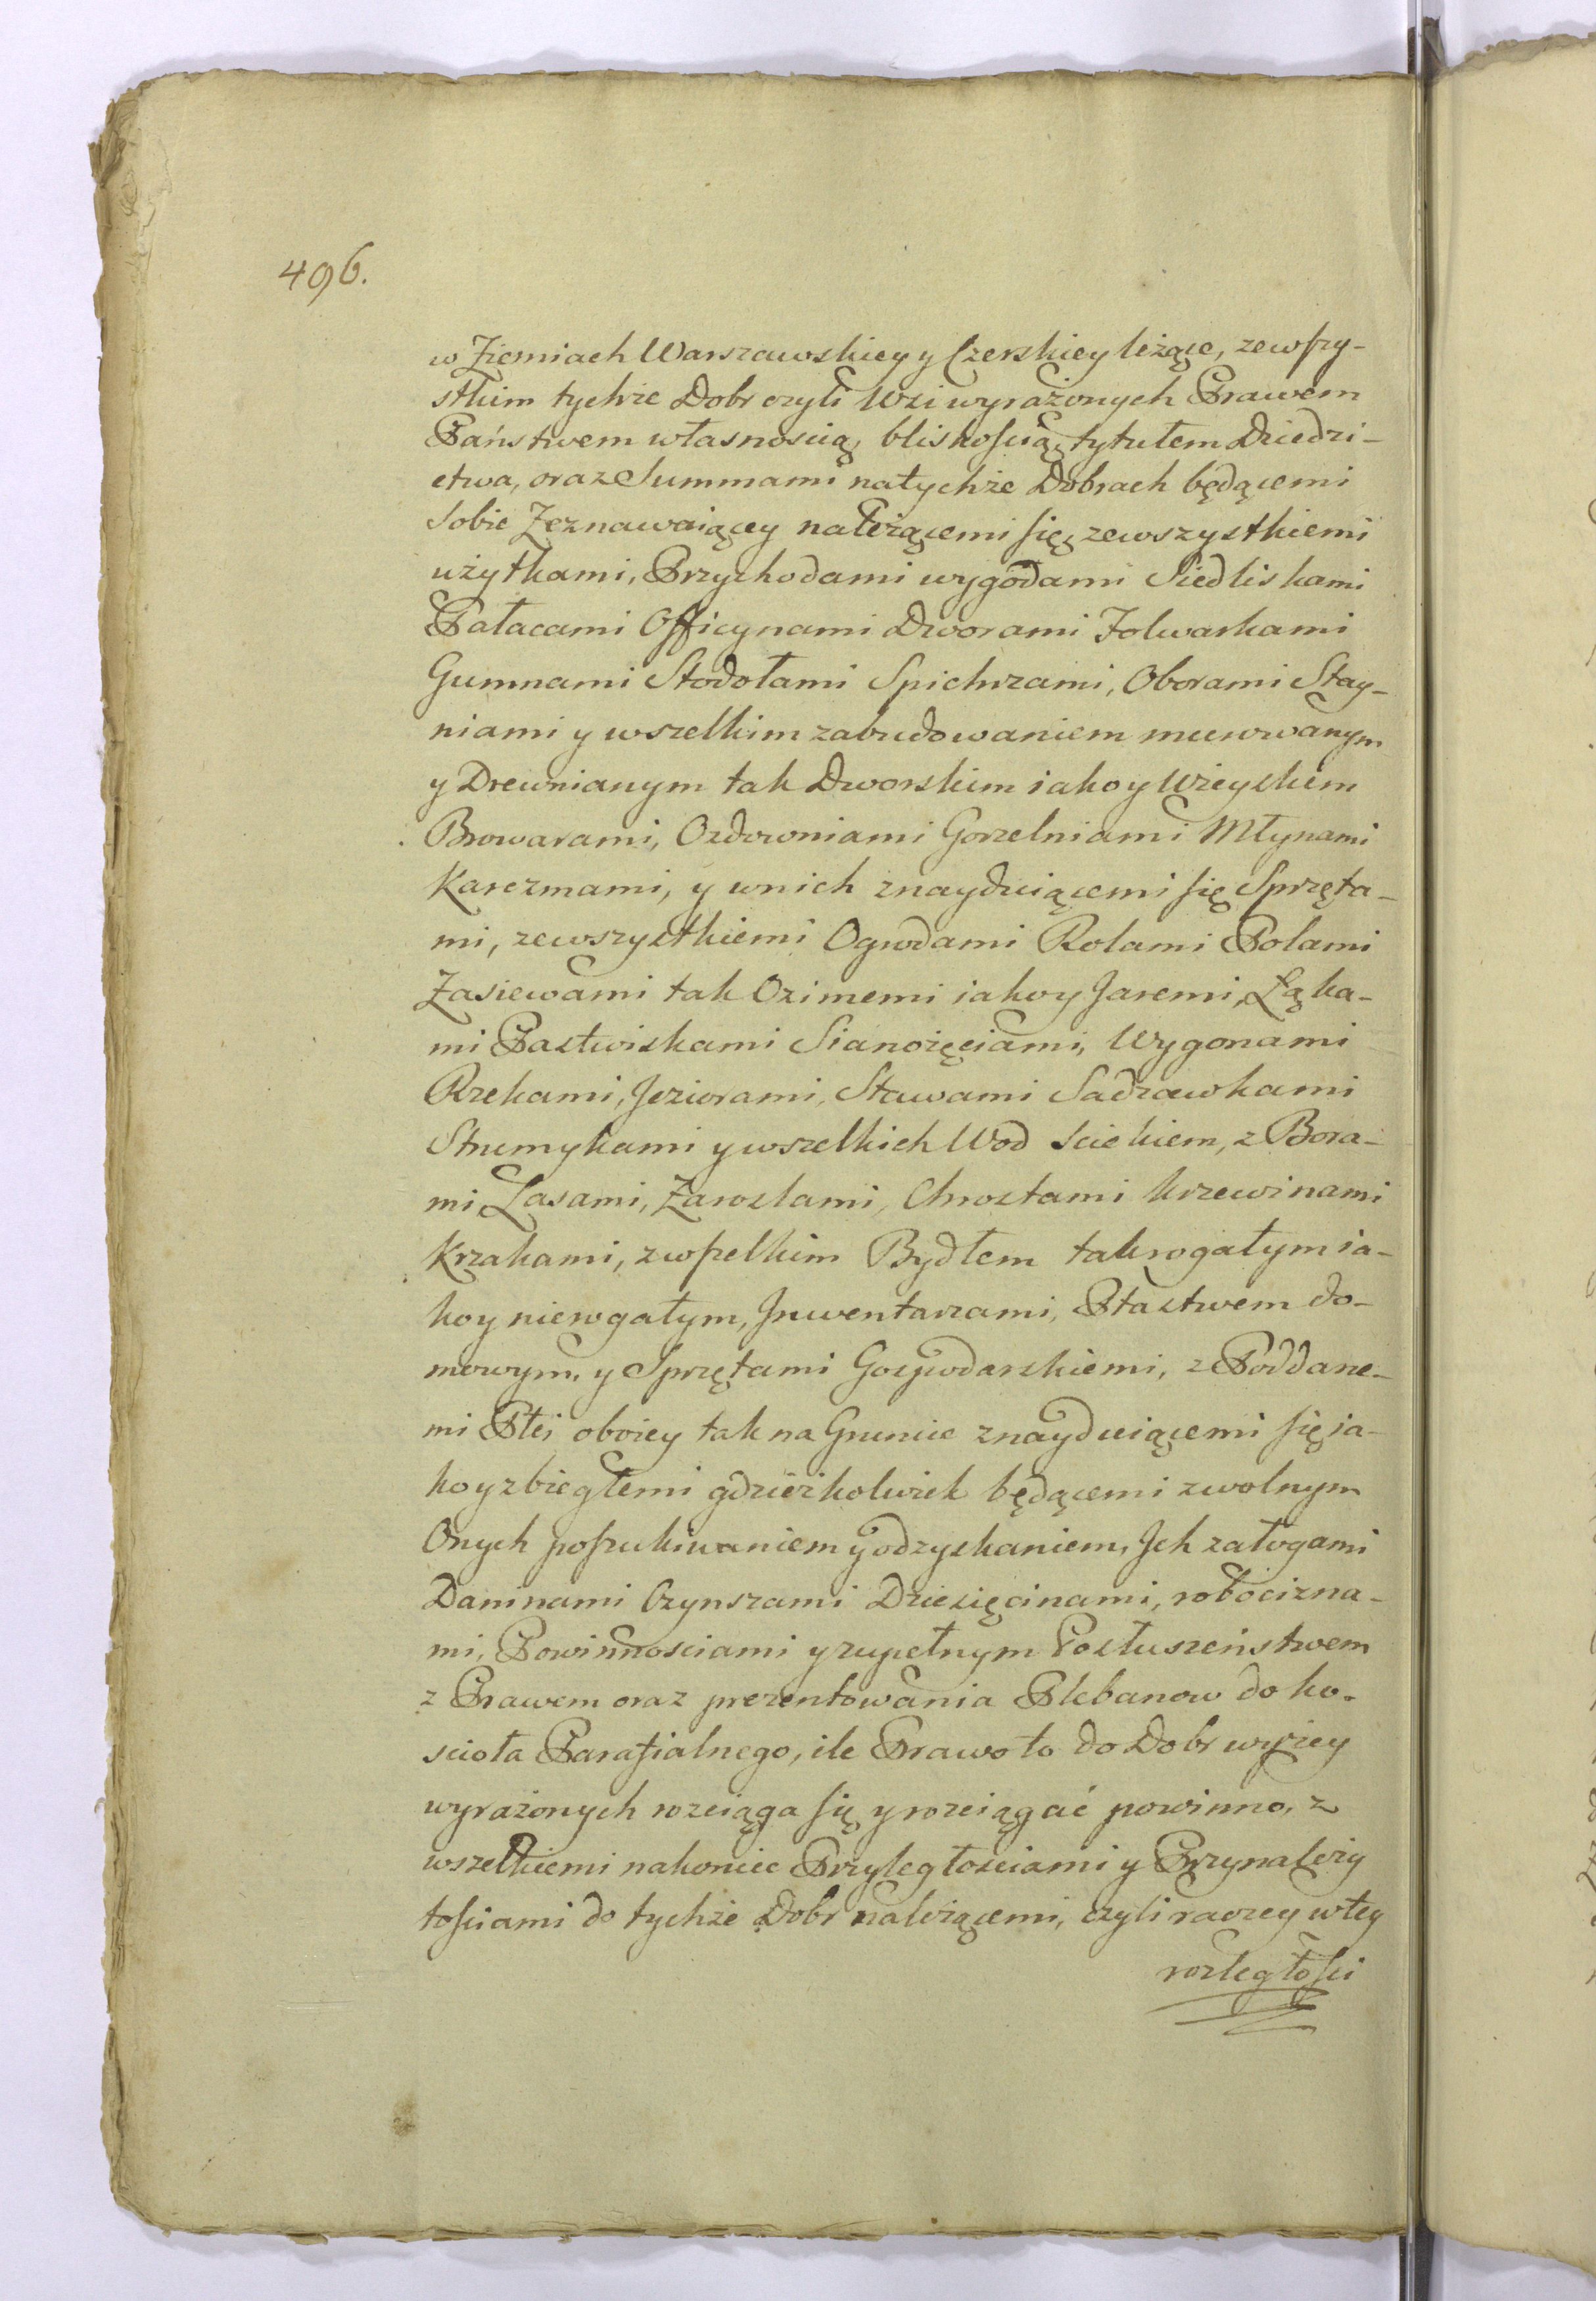 496.
w Ziemiach Warszawskiey y Czerskiey leżące, zewszy-
stkim tychże Dobr czyli Wsi wyrażonych Prawem
Państwem własnoscią, bliskością, tytułem Dziedzi-
ctwa, oraz Summami natychże Dobrach będącemi
Sobie Zeznawaiącey należącemi się, zewszystkiemi
użytkami, Przychodami wygodami Siedliskami
Pałacami Officynami Dworami Folwarkami
Gumnami Stodołami Spichrzami, Oborami Stay-
niami y wszelkim zabudowaniem murowanym
y Drewnianym tak Dworskim iako y Wieyskim
Browarami, Ozdowniami Gorzelniami Młynami
Karczmami, y wnich znayduiącemi się Sprzęta-
mi, zewszystkiemi Ogrodami Rolami Polami
Zasiewami tak Ozimemi iakoy Jaremi, Łąka-
mi Pastwiskami Sianożęciami, Wygonami
Rzekami, Jeziorami, Stawami Sadzawkami
Strumykami y wszelkich Wod sciekiem, z Bora-
mi, Lasami, Zaroslami, Chrostami krzewinami
Krzakami, z wszelkim Bydłem tak rogatym ia-
koy nierogatym, Jnwentarzami, Ptastwem do-
mowym, y Sprzętami Gospodarskiemi, z Poddane-
mi Płci oboiey tak na Gruncie znayduiącemi się ia-
koy zbiegłemi gdzieżkolwiek będącemi z wolnym
Onych poszukiwaniem y odzyskaniem, Jch załogami
Daninami Czynszami Dziesięcinami, robocizna-
mi, Powinnosciami y zupełnym Posłuszeństwem
z Prawem oraz prezentowania Plebanow do ko-
scioła Parafialnego, ile Prawo to do Dobr wyżey
wyrażonych rozciąga się y rozciągać powinno, z
wszelkiemi nakoniec Przyległosciami y Przynależy
tościami do tychże Dobr należącemi, czyli raczey w tey
rozległości